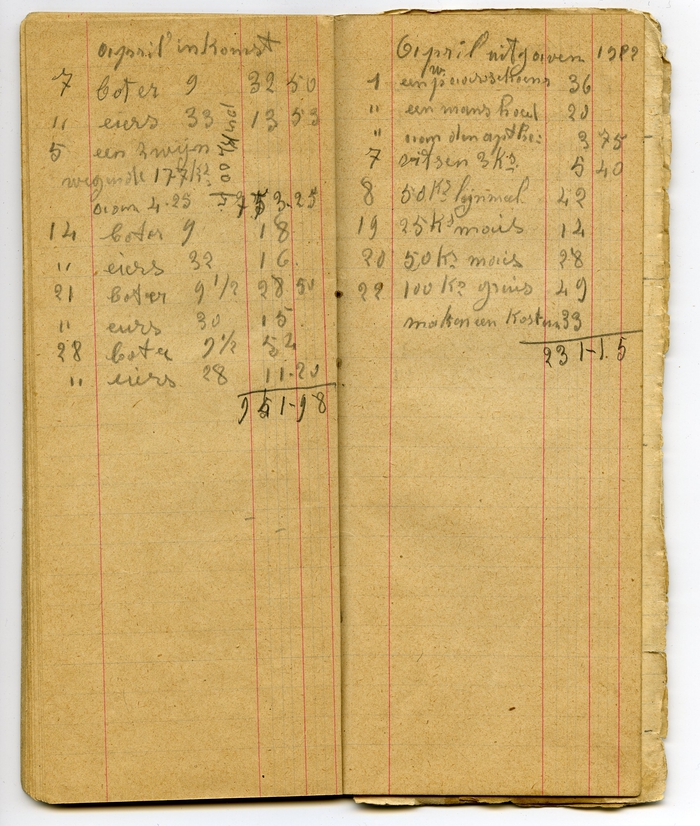 april inkomst
7 boter 9 32 50
" eiers 33 13 53
5 een zwyn
wegende 177 K°
aan 4-25 753-25
14 boter 9 18
" eiers 32 16
21 boter 9 1/2 28 50
" eiers 30 15
28 boter 9 1/2 52
" eiers 28 11-20
951-98
April uitgaven
1 een paar schoens 36
" een mans hoed 20
" aan den apthe: 3 75
7 3 K° 5 40
8 50 K° lynmeel 42
19 25 K° mais 14
20 50 K° mais 28
22 100 K° gruis 49
maken een kostum 33
231-1.5